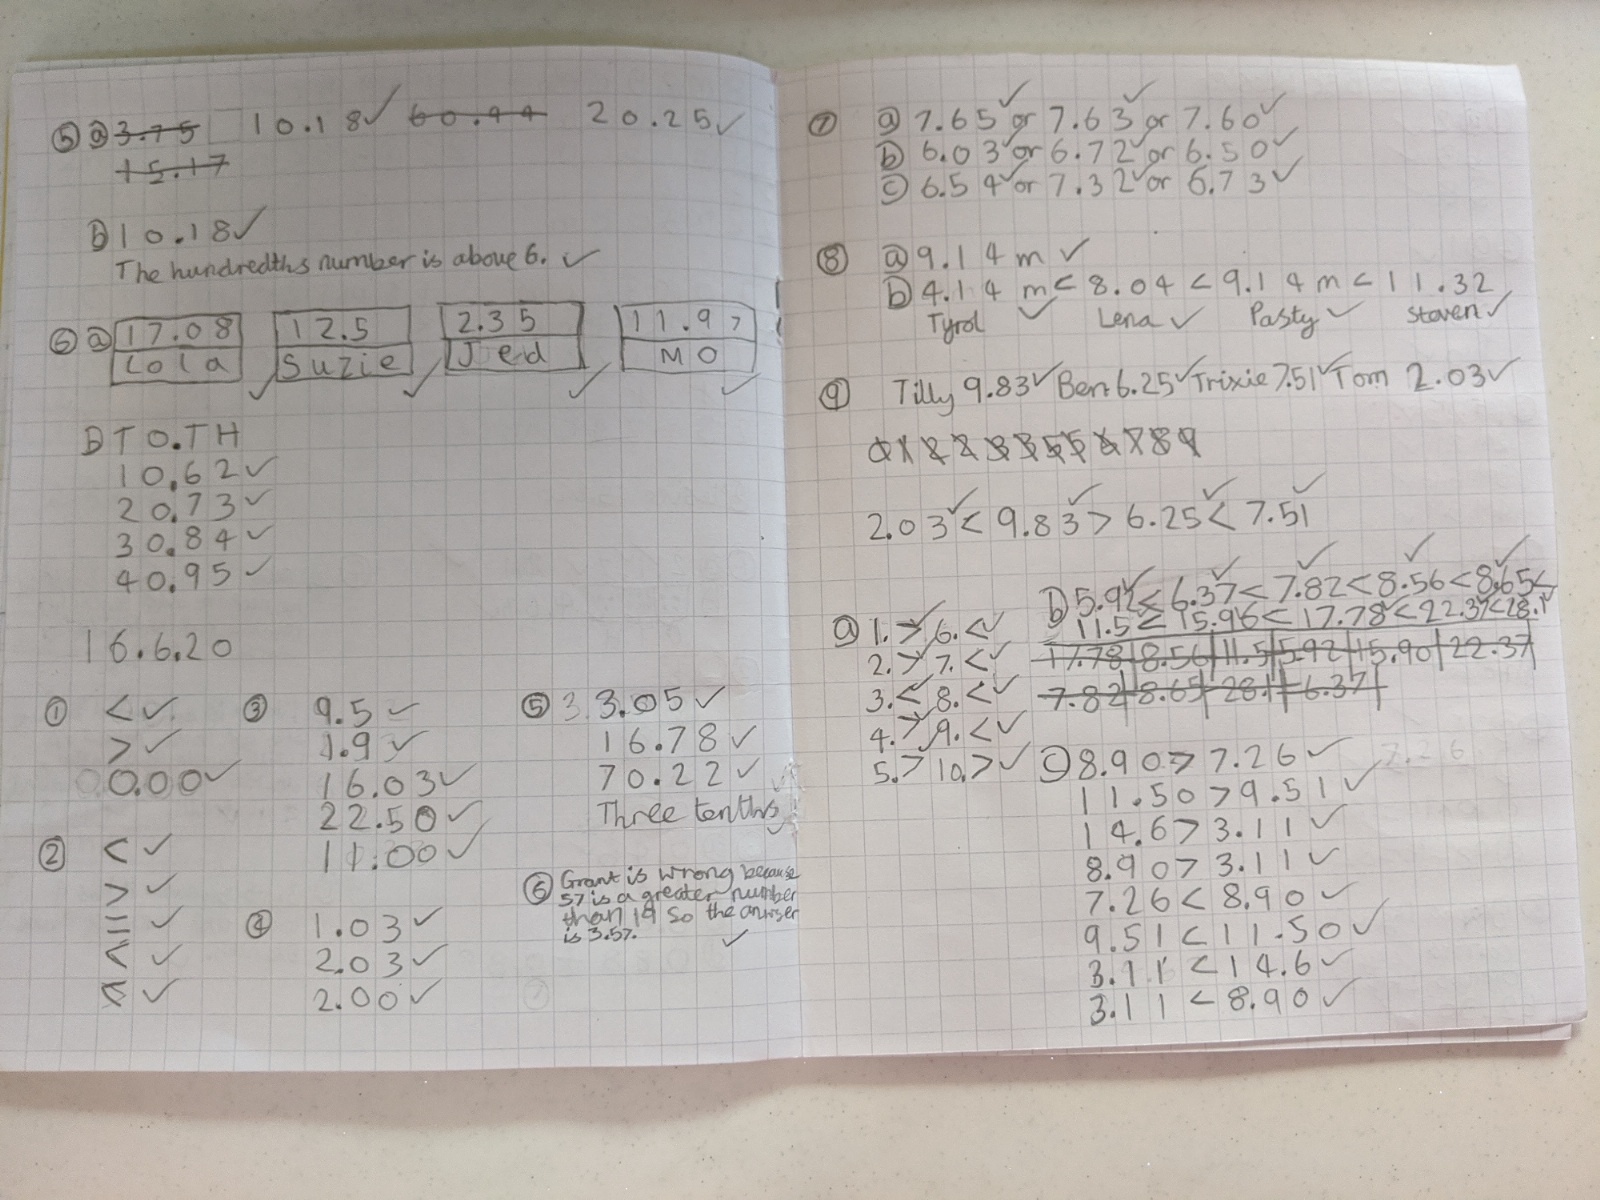 5 a 3.75 10.18 ✓ 60.44 20.25 ✓
15.17
b 10.18 ✓
The hundredths number is above 6. ✓
6 a 17.08 12.5 2.35 11.97
Lola Suzie Jed MO
✓ ✓ ✓ ✓
b T O.TH
10.62 ✓
20.73 ✓
30.84 ✓
40.95 ✓
16.6.20
1 < ✓
> ✓
0.00 ✓
2 < ✓
> ✓
= ✓
< ✓
< ✓
3 9.5 ✓
1.9 ✓
16.03 ✓
22.50 ✓
11.00 ✓
4 1.03 ✓
2.03 ✓
2.00 ✓
5 33.05 ✓
16.78 ✓
70.22 ✓
Three tenths ✓
6 Grant is wrong because
57 is a greater number
than 19 so the answer
is 3.57. ✓
7 a 7.65 ✓ or 7.63 ✓ or 7.60 ✓
b 6.03 ✓ or 6.72 ✓ or 6.50 ✓
c 6.54 ✓ or 7.32 ✓ or 6.73 ✓
8 a 9.14 m ✓
b 4.14 m < 8.04 < 9.14 m < 11.32
Tyrol ✓ Lena ✓ Pasty ✓ Staven ✓
9 Tilly 9.83 ✓ Ben 6.25 ✓ Trixie 7.51 ✓ Tom 2.03 ✓
0 1 2 2 3 3 5 5 6 7 8 9
2.03 ✓ < 9.83 ✓ > 6.25 ✓ < 7.51 ✓
a 1. > ✓ 6. < ✓
2. > ✓ 7. < ✓
3. < ✓ 8. < ✓
4. > ✓ 9. < ✓
5. > ✓ 10. > ✓
b 5.92 < 6.37 < 7.82 < 8.56 < 8.65 <
11.5 < 15.96 < 17.78 < 22.37 < 28.1
17.78 8.56 11.5 5.92 15.90 22.37
7.82 8.65 28.1 6.37
c 8.90 > 7.26 ✓ 7.26
11.50 > 9.51 ✓
14.6 > 3.11 ✓
8.90 > 3.11 ✓
7.26 < 8.90 ✓
9.51 < 11.50 ✓
3.11 < 14.6 ✓
3.11 < 8.90 ✓